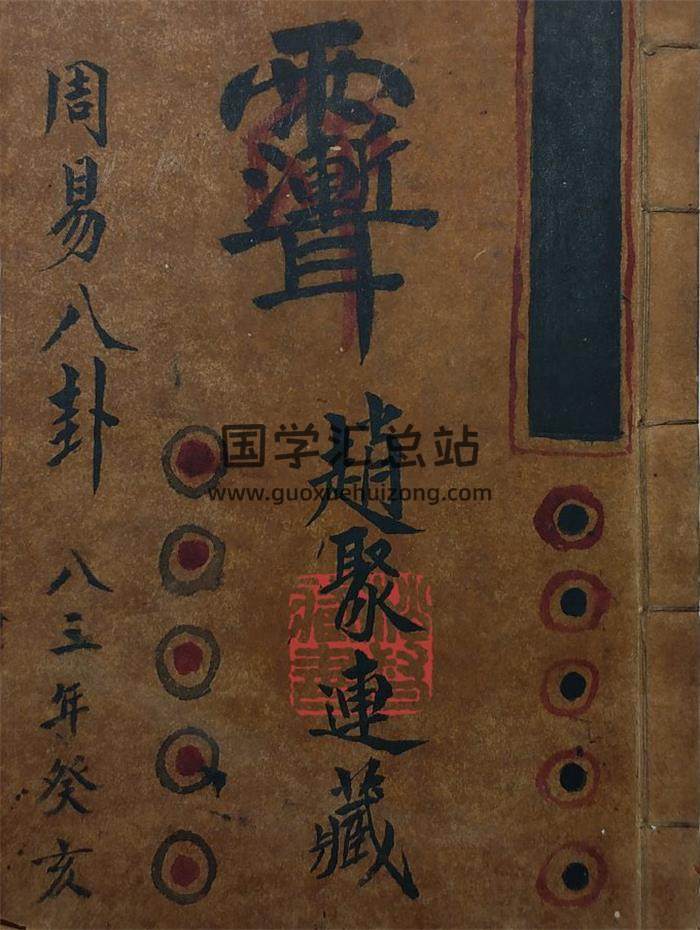 趙聚連藏
周易八卦 八三年癸亥
国学汇总站
www.guoxuehuizong.com